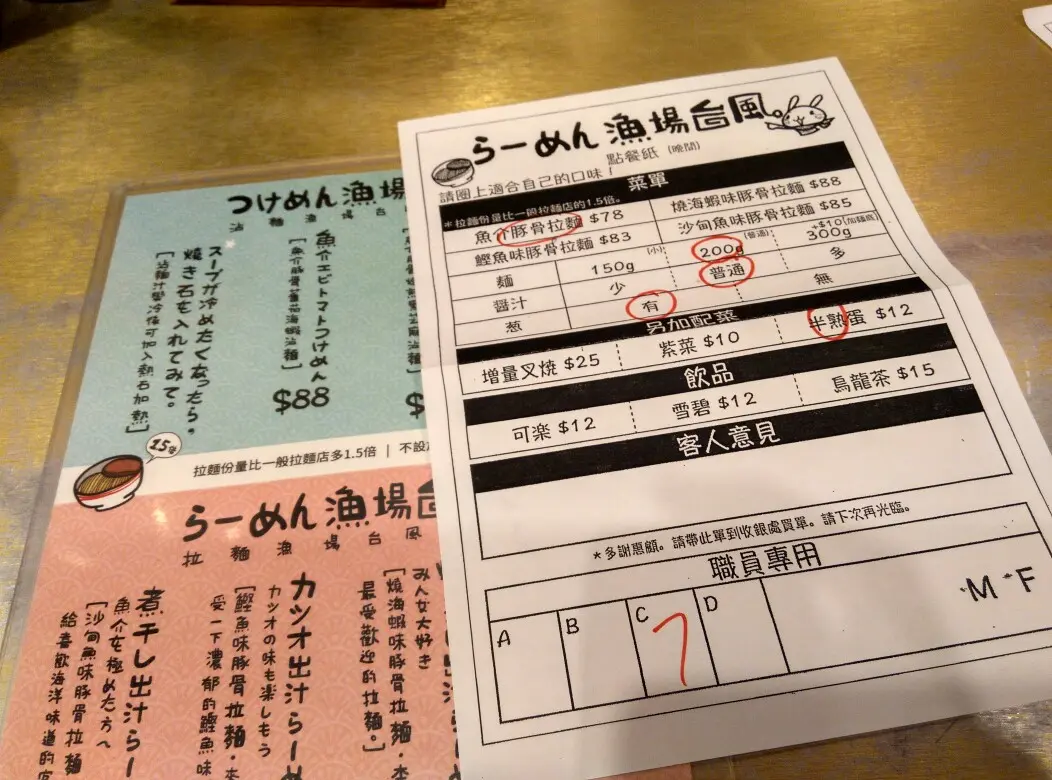 らーめん 漁場台風。
點餐紙 (晚間)
請圈上適合自己的口味！
菜單
*拉麵份量比一般拉麵店的1.5倍。
魚介豚骨拉麵 $78
燒海蝦味豚骨拉麵 $88
鰹魚味豚骨拉麵 $83
沙甸魚味豚骨拉麵 $85
麵
150g (小)
200g (普通)
300g +$10(加麵底)
醬汁
少
普通
多
葱
有
無
另加配菜
增量叉焼 $25
紫菜 $10
半熟蛋 $12
飲品
可楽 $12
雪碧 $12
烏龍茶 $15
客人意見
*多謝惠顧。請帶此單到收銀處買單。請下次再光臨。
職員專用
A
B
C
7
D
M
F
つけめん 漁場
魚介エビトマトつけめん
$88
スープが冷めたくなったら，
燒き石を入れてみて。
1.5倍
拉麵份量比一般拉麵店多1.5倍 | 不設
らーめん 漁場台
拉 麵 漁 場 台 風
みんな大好き
[燒海蝦味豚骨拉麵・
最受歡迎的拉麵。]
カツオ出汁らーめ
カツオの味も楽しもう
[鰹魚味豚骨拉麵・
受一下濃郁的鰹魚味
煮干し出汁らー
魚介を極めた方へ
[沙甸魚味豚骨拉麵
給喜歡海洋味道的